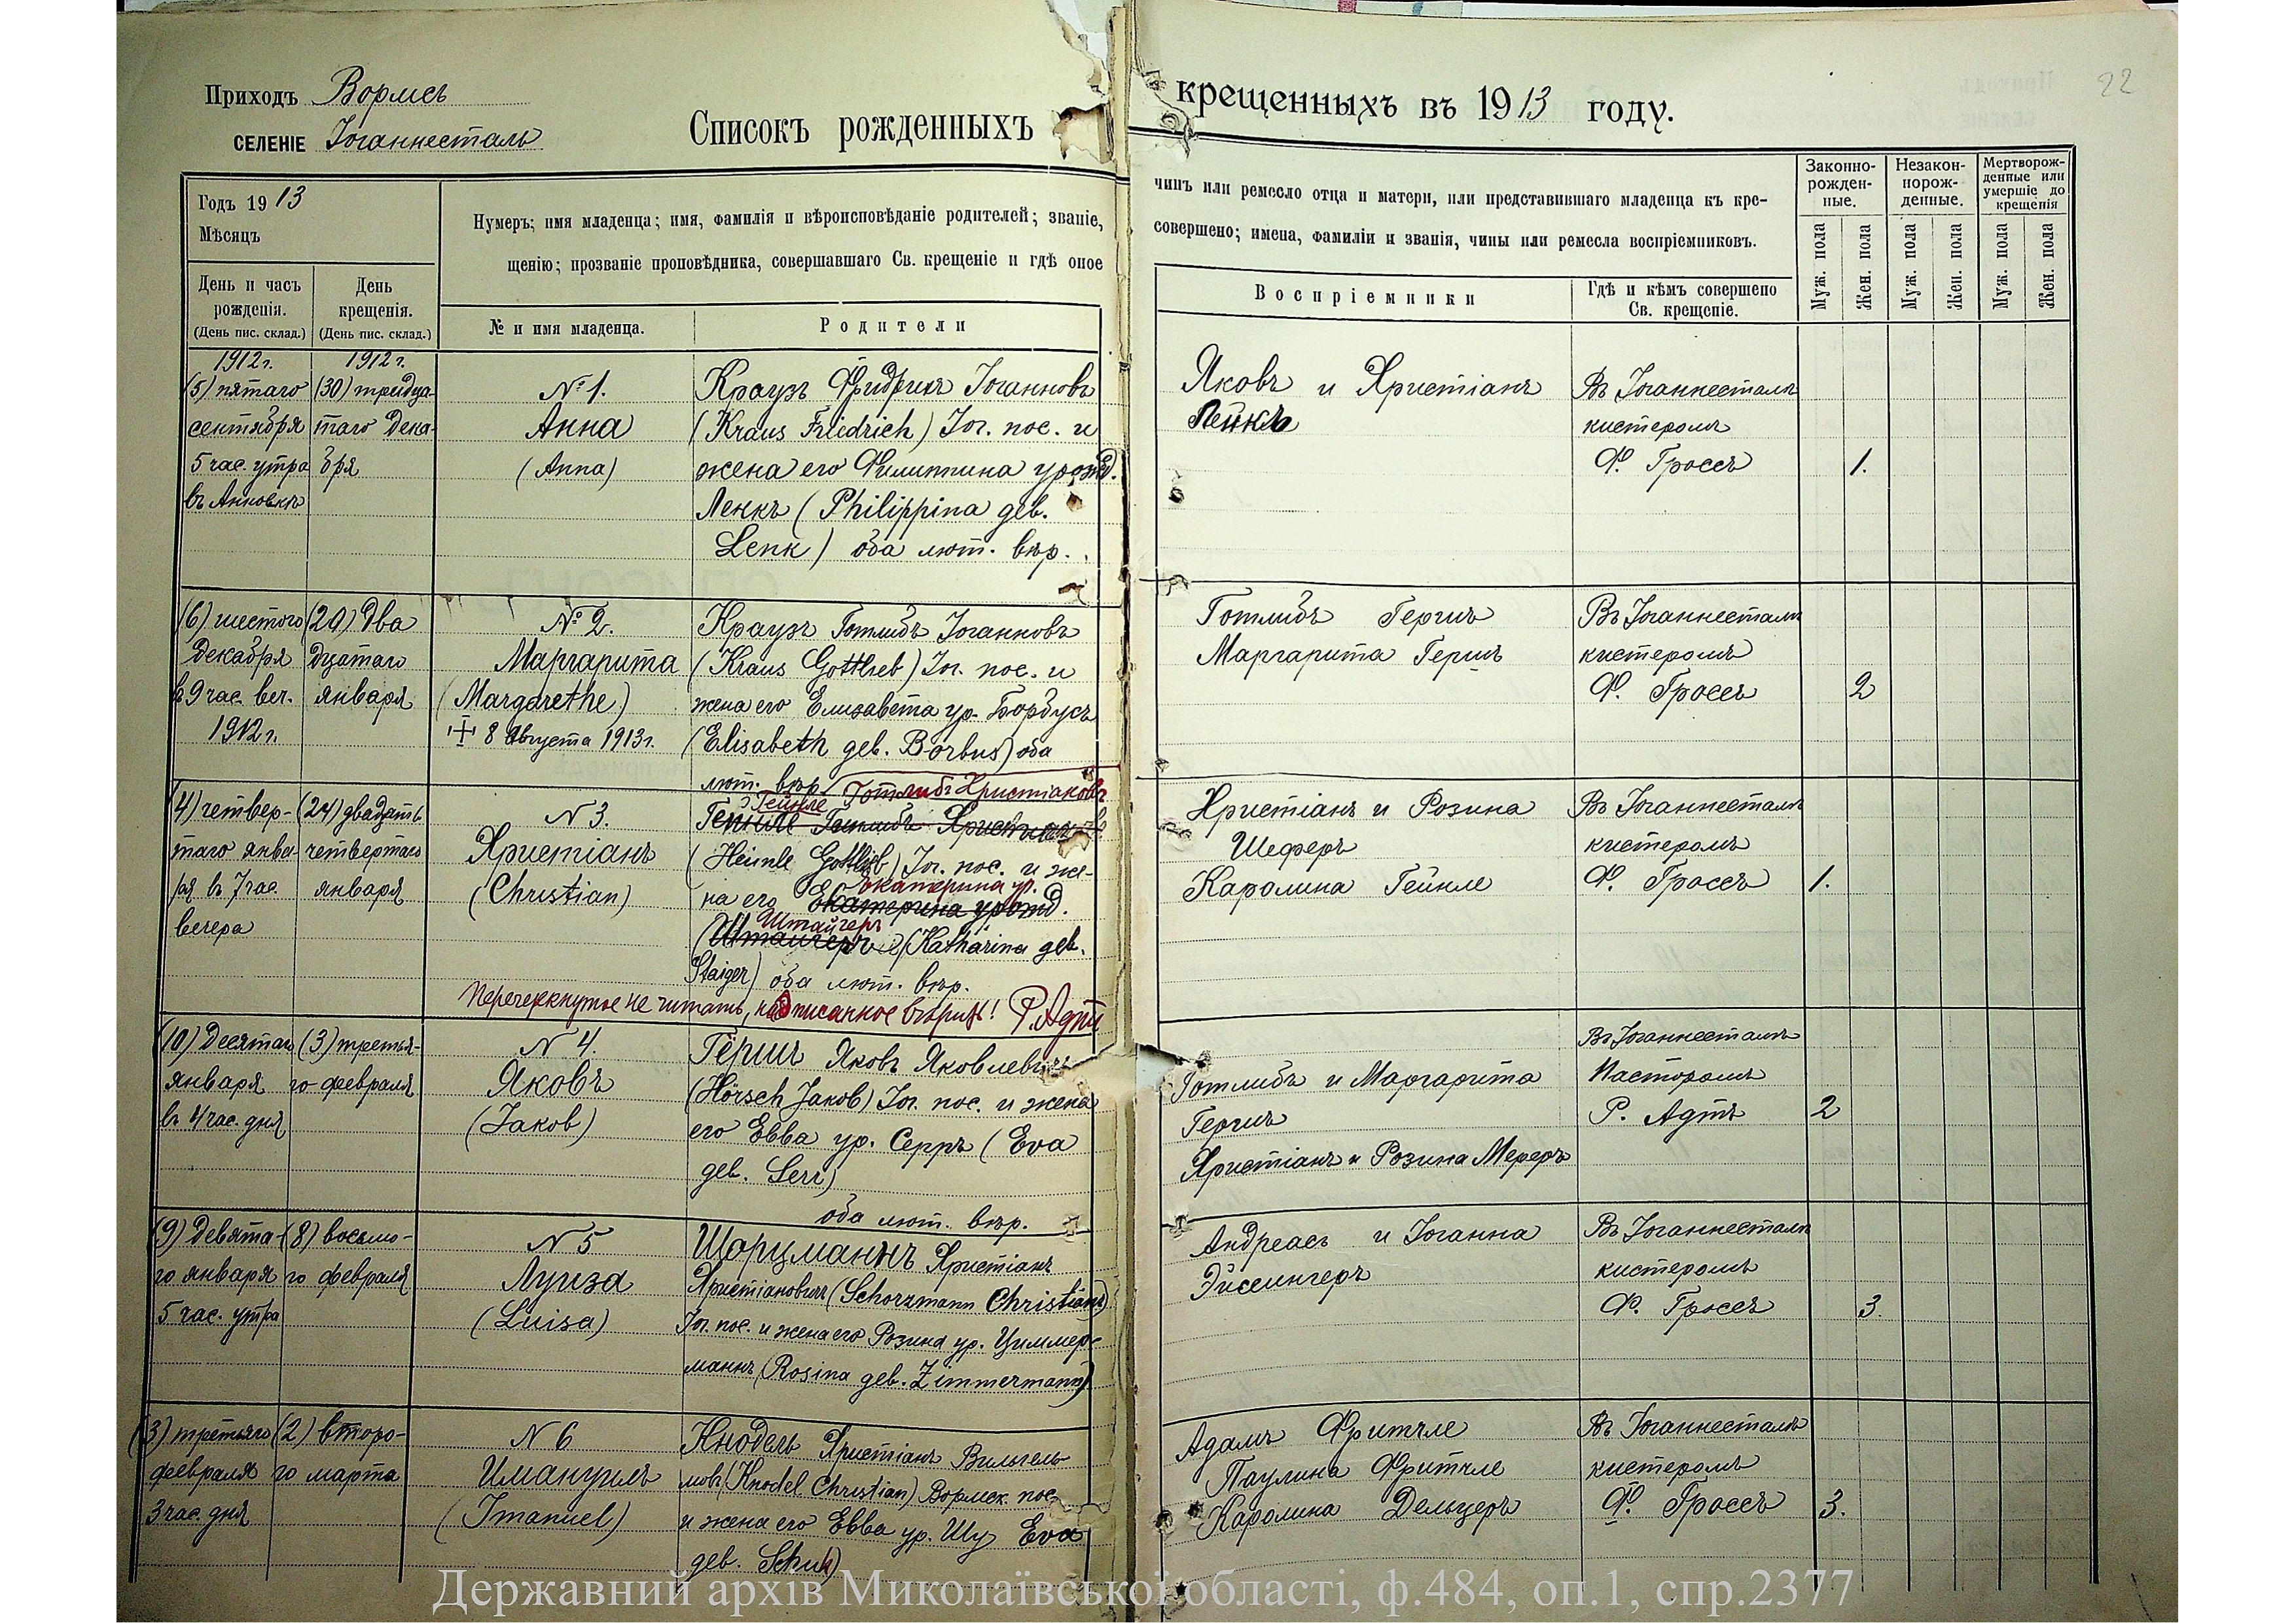 Приходъ Вормсъ
селеніе Іоганнесталь
Списокъ рожденныхъ
крещенныхъ въ 1913 году.
22
Годъ 1913
Мѣсяцъ
День и часъ рожденія.
(День пис. склад.)
День крещенія.
(День пис. склад.)
Нумеръ; имя младенца; имя, фамилія и вѣроисповѣданіе родителей; званіе,
щенію; прозваніе проповѣдника, совершавшаго Св. крещеніе и гдѣ оное
№ и имя младенца.
Родители
чинъ или ремесло отца и матери, или представившаго младенца къ кре-
совершено; имена, фамиліи и званія, чины или ремесла воспріемниковъ.
Воспріемники
Гдѣ и кѣмъ совершено
Св. крещеніе.
Законно-
рожден-
ные.
Незакон-
норож-
денные.
Мертворож-
денные или
умершіе до
крещенія
Муж. пола
Жен. пола
Муж. пола
Жен. пола
Муж. пола
Жен. пола
1912 г.
(5) пятаго
сентября
5 час. утра
въ Анновкѣ
1912 г.
(30) тридца-
таго дека-
бря
№ 1.
Анна
(Anna)
Краузъ Фридрихъ Іоганновъ
(Kraus Friedrich) Іог. пос. и
жена его Филиппина урожд.
Ленкъ (Philippina geb.
Lenk) оба лют. вѣр.
Яковъ и Христіанъ
Ленкъ
Въ Іоганнесталѣ
кистеромъ
Ф. Гроссъ
1.
(6) шестого
декабря
в 9 час. веч.
1912 г.
(20) два
дцатаго
января
№ 2.
Маргарита
(Margarethe)
+ 8 Августа 1913 г.
Краузъ Готлибъ Іоганновъ
(Kraus Gottlieb) Іог. пос. и
жена его Елизавета ур. Борбусъ
(Elisabeth geb. Borbus) оба
лют. вѣр.
Готлибъ Гершъ
Маргарита Гершъ
Въ Іоганнесталѣ
кистеромъ
Ф. Гроссъ
2
(4) четвер-
таго янва-
ря въ 7 час.
вечера
(24) двадцать
четвертаго
января
N 3.
Христіанъ
(Christian)
Гейнле Готлибъ Христіановъ
Гейнле Готлибъ Христіановъ
(Heinle Gottlieb) Іог. пос. и же-
Екатерина ур.
на его Екатерина урожд.
Штайгеръ
(Штайгеръ) (Katharina geb.
Staiger) оба лют. вѣр.
Перечеркнутое не читать, надписанное вѣрить! Р. Адтъ
Христіанъ и Розина
Шеферъ
Каролина Гейнле
Въ Іоганнесталѣ
кистеромъ
Ф. Гроссъ
1.
(10) Десятаго
января
въ 4 час. дня
(3) третья-
го февраля
N 4.
Яковъ
(Jakob)
Гёршъ Яковъ Яковлевичъ
(Hörsch Jakob) Іог. пос. и жена
его Евва ур. Серръ (Eva
geb. Serr)
оба лют. вѣр.
Готлибъ и Маргарита
Гершъ
Христіанъ и Розина Мереръ
Въ Іоганнесталѣ
Пасторомъ
Р. Адтъ
2
(9) Девята-
го января
5 час. утра
(8) восьмо-
го февраля
N 5
Луиза
(Luisa)
Шорцманнъ Христіанъ
Христіановичъ (Schorzmann Christian)
Іог. пос. и жена его Розина ур. Циммер-
маннъ (Rosina geb. Zimmermann)
Андреасъ и Іоганна
Эйсингеръ
Въ Іоганнесталѣ
кистеромъ
Ф. Гроссъ
3.
(3) третьяго
февраля
3 час. дня
(2) второ-
го марта
N 6
Имануилъ
(Imanuel)
Кнодель Христіанъ Вильгель-
мовъ (Knodel Christian) Вормск. пос.
и жена его Евва ур. Шу Eva
geb. Schuh)
Адамъ Фритчле
Паулина Фритчле
Каролина Дельцеръ
Въ Іоганнесталѣ
кистеромъ
Ф. Гроссъ
3.
Державний архів Миколаївської області, ф.484, оп.1, спр.2377